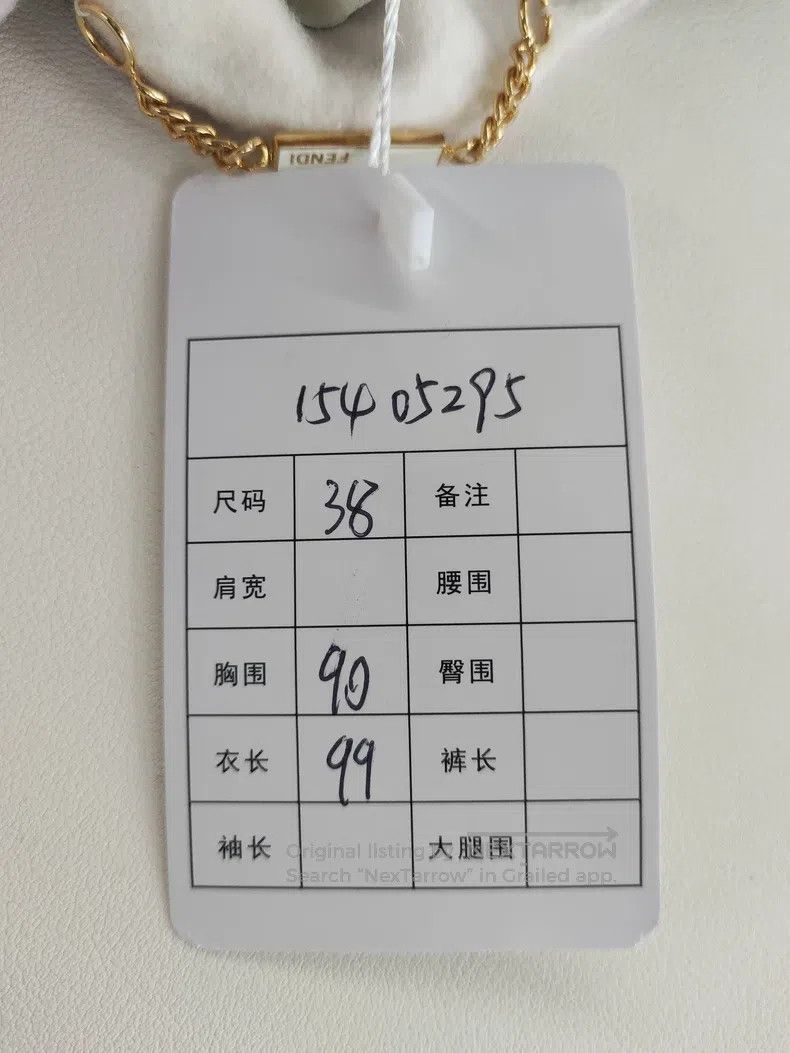 FENDI
15405295
尺码 38 备注
肩宽 腰围
胸围 90 臀围
衣长 99 裤长
袖长 大腿围
Original listing by NEXTARROW
Search "NexTarrow" in Grailed app.